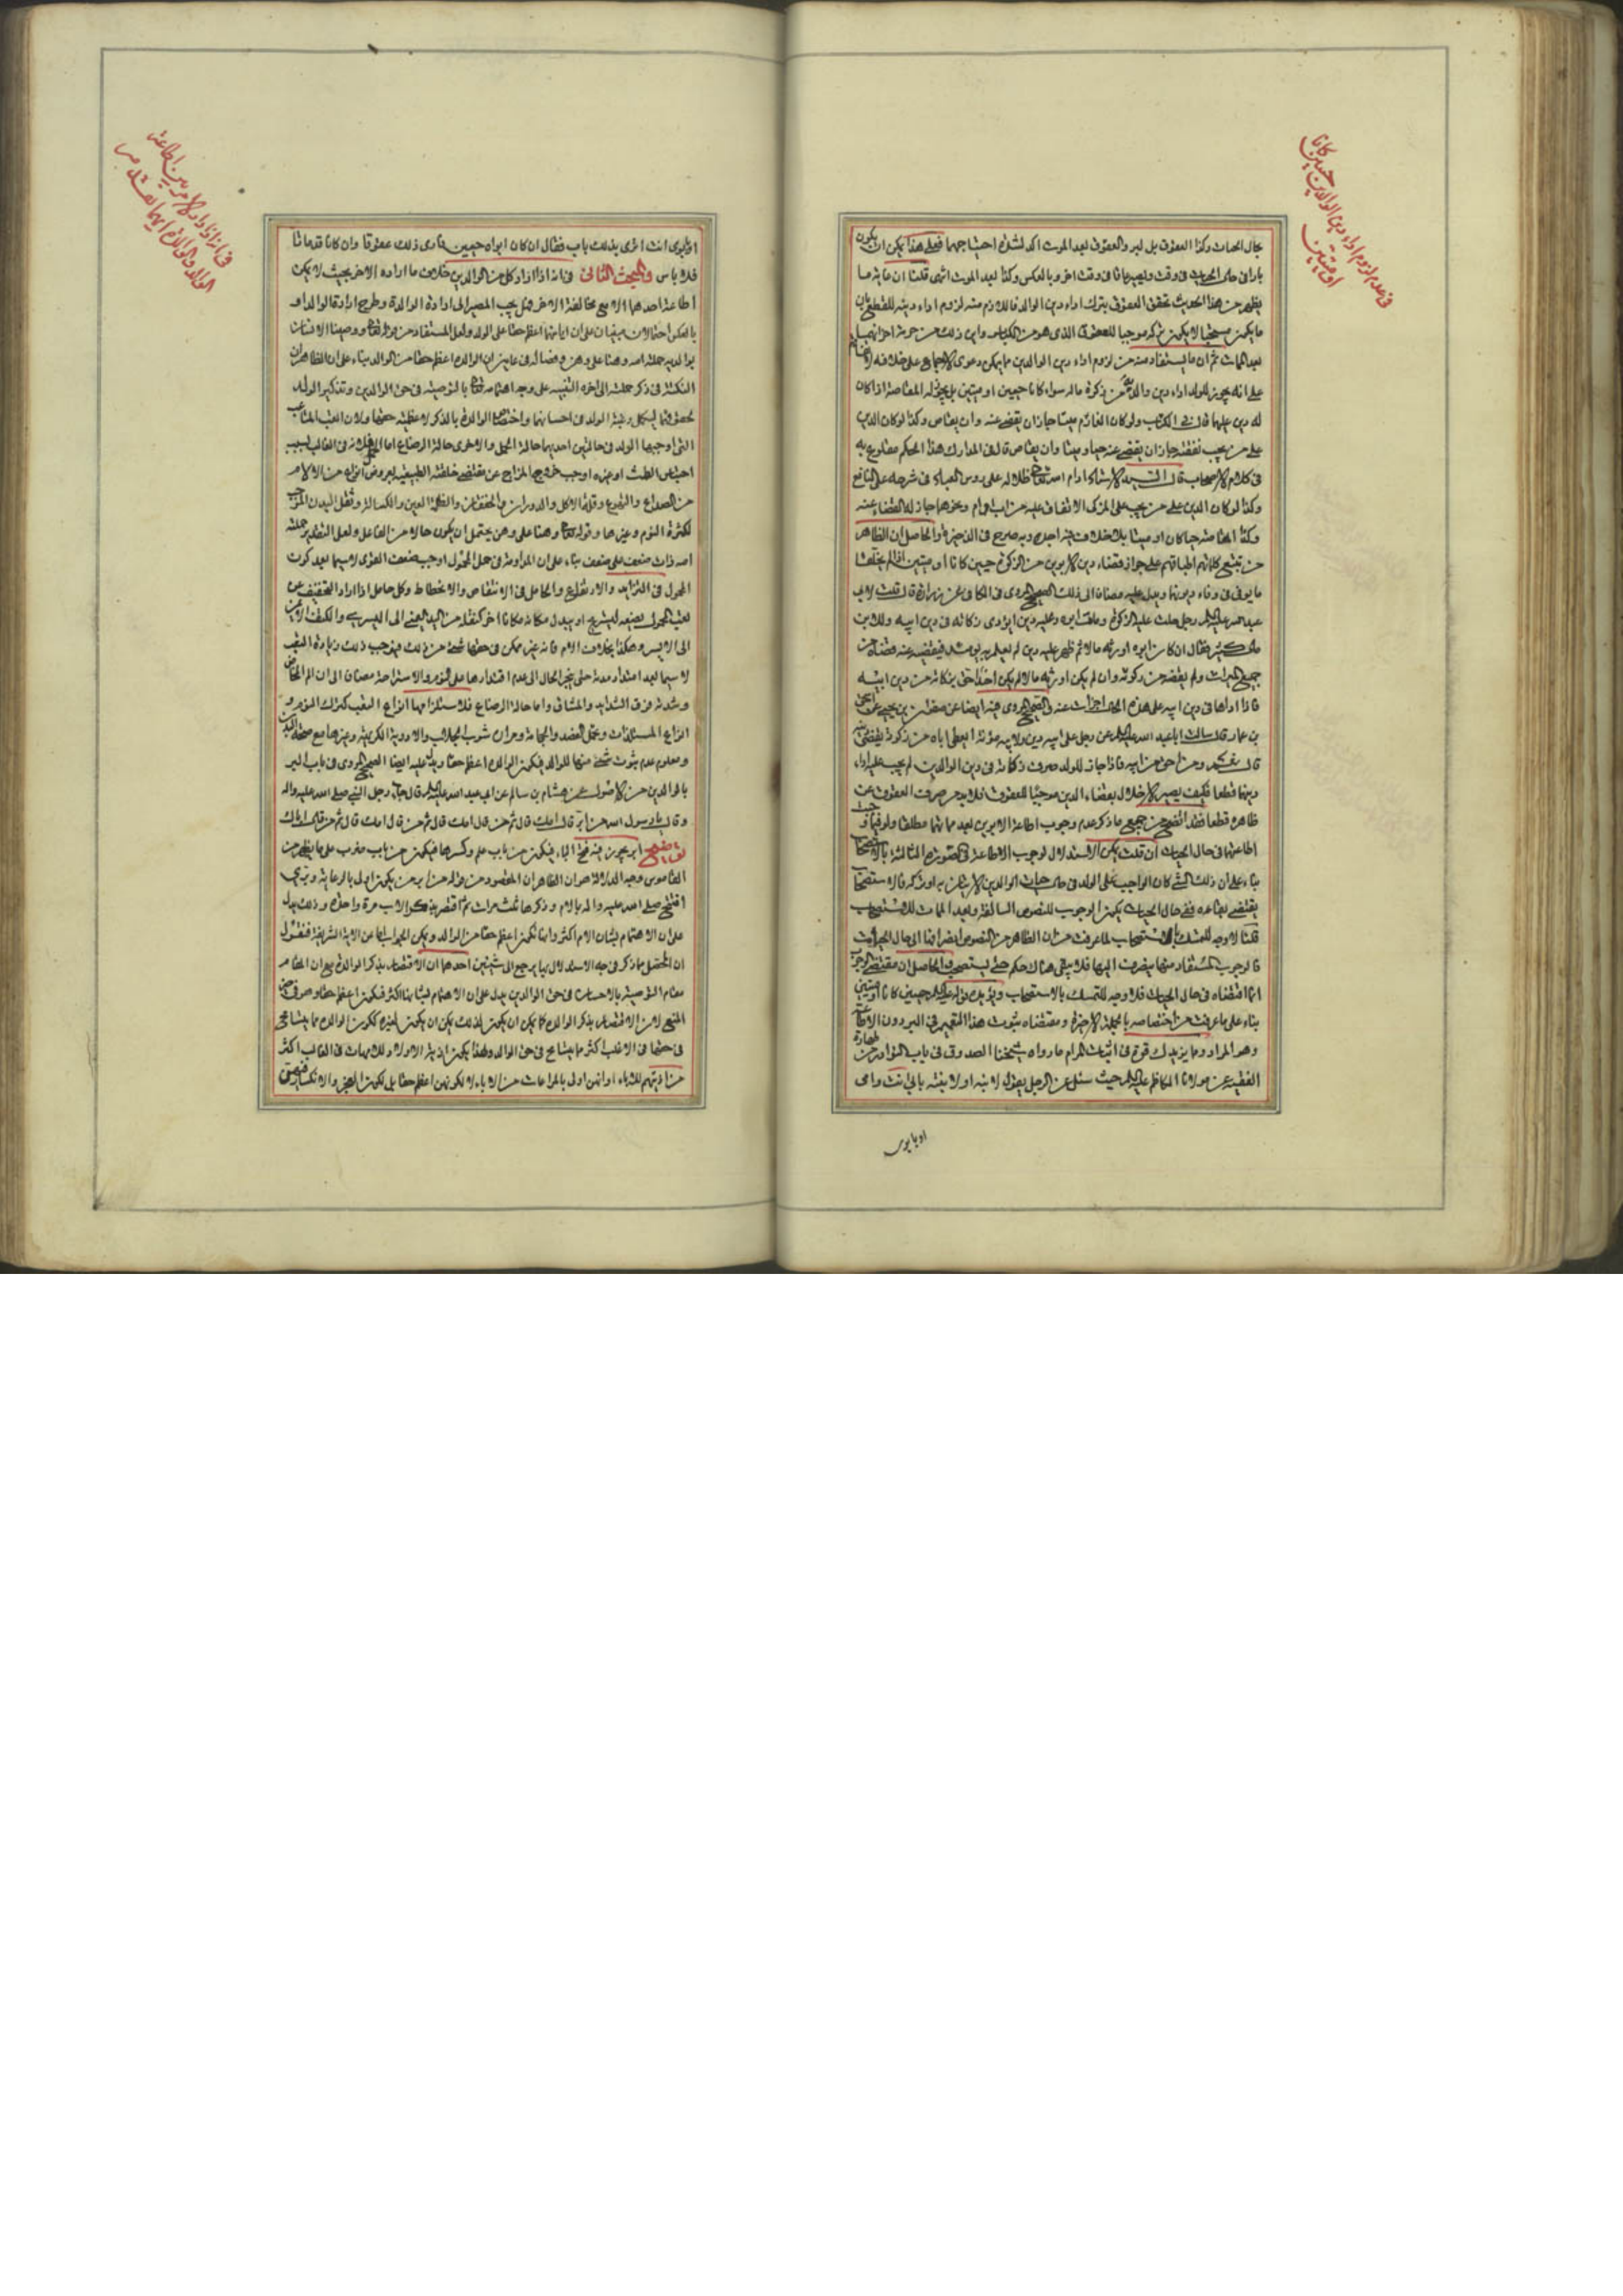 في عدم لزوم اداء دين الوالدين حيين كانا
او ميتين
بحال الحيات وكذا العقوق بل لبر والعقوق بعد الموت اكد لشدة احتياجهما فعلى هذا يمكن ان يكون
بارا في حال الحيوة في وقت ويصير عاقا في وقت اخر وبالعكس وكذا بعد الموت انتهى قلنا ان غاية ما
يظهر من هذا الحديث تحقق العقوق بترك اداء دين الوالد فاللازم منه لزوم اداء دينه للقطع بان
ما يكون مستحبا لا يكون تركه موجبا للعقوق الذي هو من الكبائر واين ذلك من حرمة احزانهما
بعد الممات ثم ان ما يستفاد منه من لزوم اداء دين الوالدين مما يمكن دعوى الاجماع على خلافه
على انه يجوز للولد اداء دين والديه من زكوة ماله سواء كانا حيين او ميتين بل يجوز له المقاصة اذا كان
له دين عليهما قال في الكتب ولو كان الغارم ميتا جاز ان يقضى عنه وان يقاص وكذا لو كان الدين
على من يجب نفقته جاز ان يقضى عنه حيا وميتا وان يقاص قال في المدارك هذا الحكم مقطوع به
في كلام الاصحاب قال السيد الاستاد ادام الله تعالى ظلاله على رؤس العباد في شرحه على النافع
وكذا لو كان الدين على من يجب على المزكى الانفاق عليه من اب وام ونحوها جاز له القضاء عنه
وكذا المقاصة حيا كان او ميتا بلا خلاف فيه اجده وبه صرح في الذخيرة والحاصل ان الظاهر
من تتبع كلماتهم اطباقهم على جواز قضاء دين الابوين من الزكوة حيين كانا او ميتين
ما يوفى في وفاء ديونهما ويدل عليه مضافا الى ذلك الصحيح المروي في الكافي عن زرارة قال قلت لابي
عبد الله عليه السلام رجل حلت عليه الزكوة ومات ابوه وعليه دين ايؤدى زكاته في دين ابيه وللابن
مال كثير فقال ان كان ابوه اورثه مالا ثم ظهر عليه دين لم يعلم به يومئذ فيقضيه عنه قضاه من
جميع الميراث ولم يقضه من زكوته وان لم يكن اورثه مالا لم يكن احدا احق بزكاته من دين ابيه
فاذا اداها في دين ابيه على هذه الحال اجزات عنه والصحيح المروي فيه ايضا عن صفوان بن يحيى عن اسحق
بن عمار قال سالت ابا عبد الله عليه السلام عن رجل على ابيه دين ولابيه مؤنة ايعطى اباه من زكوته يقضى دينه
قال نعم ومن احق من ابيه فاذا جاز للولد صرف زكاته في دين الوالدين لم يجب عليه اداء
دينهما قطعا فكيف يصير الاخلال بقضاء الدين موجبا للعقوق فلا بد من صرف العقوق عن
ظاهره قطعا فقد اتضح من جميع ما ذكر عدم وجوب اطاعة الابوين بعد مماتهما مطلقا ولو فيما وجب
اطاعتهما في حال الحيات ان قلت يمكن الاستدلال لوجوب الاطاعة في الصورة المثالثة بالاستصحاب
بناء على ان ذلك الشئ كان الواجب على الولد في حال حيات الوالدين الاتيان به او تركه فالاستصحاب
يقتضى بقائه ففي حال الحيات يكون الوجوب للنصوص السالفة وبعد الممات للاستصحاب
قلنا لا وجه للتمسك بالاستصحاب لما عرفت من ان الظاهر من النصوص انصرافها الى حال الحيات
فالوجوب المستفاد منها ينصرف اليها فلا يبقى هناك حكم حتى يستصحب والحاصل ان مقتضى الوجوب
انما اقتضاه في حال الحيات فلا وجه للتمسك بالاستصحاب ويؤيده قوله عليه السلام حيين كانا او ميتين
بناء على ما عرفت من اختصاصه بالجملة الاخيرة ومقتضاه ثبوت هذا التعميم في البر دون الاطاعة
وهو المراد ومما يزيدك قوة في اثبات المرام ما رواه شيخنا الصدوق في باب النوادر من طهارة
الفقيه عن مولانا الكاظم عليه السلام حيث سئل عن الرجل يقول لابنه او لابنته بابي انت وامي
او بابوي
في انه اذا اراد كل من الوالدين اطاعة
الوالد والوالدة ايهما تقدم
او بابوي انت اترى بذلك باسا فقال ان كان ابواه حيين فارى ذلك عقوقا وان كانا قد ماتا
فلا باس والمبحث الثاني في انه اذا اراد كل من الوالدين خلاف ما اراده الاخر بحيث لا يمكن
اطاعة احدهما الا مع مخالفة الاخر فهل يجب المصير الى ارادة الوالدة وطرح ارادة الوالد او
بالعكس احتمالان مبنيان على ان ايهما اعظم حقا على الولد ولعل المستفاد من قوله تعالى ووصينا الانسان
بوالديه حملته امه وهنا على وهن وفصاله في عامين ان الوالدة اعظم حقا من الوالد بناء على ان الظاهر ان
النكتة في ذكر حملته الى اخره التنبيه على وجه اهتمامه تعالى بالتوصية في حق الوالدين وتذكير الولد
لحقوقهما ليكمل رغبة الولد في احسانهما واختصاص الوالدة بالذكر لاعظمية حقها ولان التعب المتاعب
التي اوجبها الولد في حالتين احديهما حالة الحمل والاخرى حالة الرضاع اما الحمل فلانه في الغالب بسبب
احتباس الطمث او غيره اوجب خروج المزاج عن مقتضى خلقته الطبيعية بعروض انواع من الالام
من الصداع والتهوع وقلة الاكل والدوران والخفقان وظلمة العين والكسالة وثقل البدن الموجب
لكثرة النوم وغيرها وقوله تعالى وهنا على وهن يحتمل ان يكون حالا من الفاعل ولعل التقدير حملته
امه ذات ضعف على ضعف بناء على ان المداومة في حمل المحمول اوجب ضعف القوى لا سيما بعد كون
المحمول في التزايد والارتفاع والحامل في الانتقاص والانحطاط وكل حامل اذا اراد التخفيف عن
لتعب المحمول يضعه ليستريح او يبدل مكانه مكانا اخر كنقله من اليد اليمنى الى اليسرى والكتف الايمن
الى الايسر وهكذا بخلاف الام فانه غير ممكن في حقها شئ من ذلك فيوجب ذلك زيادة التعب
لا سيما بعد امتداد مدته حتى ينجر الحال الى عدم اقتدارها على النوم والاستراحة مضافا الى ان الم المخاض
وشدته فوق الشدائد والمشاق واما حالة الرضاع فلاستلزامها انواع التعب كترك النوم و
انواع المستلذات وتحمل الفصد والحجامة ومرارة شرب الجلاب والادوية الكريهة وغيرها مع صحة البدن
ومعلوم عدم ثبوت شئ منها للوالد فيكون الوالدة اعظم حقا ويدل عليه ايضا الصحيح المروي في باب البر
بالوالدين من الاصول عن هشام بن سالم عن ابي عبد الله عليه السلام قال جاء رجل النبي صلى الله عليه واله
وقال يا رسول الله من ابر قال امك قال ثم من قال امك قال ثم من قال امك قال ثم من قال اباك
توضيح ابر يجوز فيه فتح الباء فيكون من باب علم وكسرها فيكون من باب ضرب على ما يظهر من
القاموس وجه الدلالة هو ان الظاهر ان المقصود من قوله من ابر من يكون اولى بالرعاية وبدئ
افتتح صلى الله عليه واله بالام وذكرها ثلث مرات ثم اقتصر بذكر الاب مرة واحدة وذلك يدل
على ان الاهتمام بشان الام اكثر وانها تكون اعظم حقا من الوالد ويمكن الجواب اما عن الاية الشريفة فنقول
ان المحصل مما ذكر في وجه الاستدلال بها يرجع الى شيئين احدهما ان الاقتصار بذكر الوالدة مع ان المقام
مقام التوصية بالاحسان في حق الوالدين يدل على ان الاهتمام بشانها اكثر فيكون اعظم حقا وهو في حيز
المنع لان الاقتصار بذكر الوالدة كما يمكن ان يكون لذلك يمكن ان يكون لغيره ككون الوالدة مما يتسامح
في حقها في الاغلب اكثر مما يتسامح في حق الوالد ولهذا يكون اذية الاولاد للامهات في الغالب اكثر
من اذيتهم للاباء او انهن اولى بالمراعات من الاباء لا لكونهن اعظم حقا بل لكون العجز والانكسار فيهن